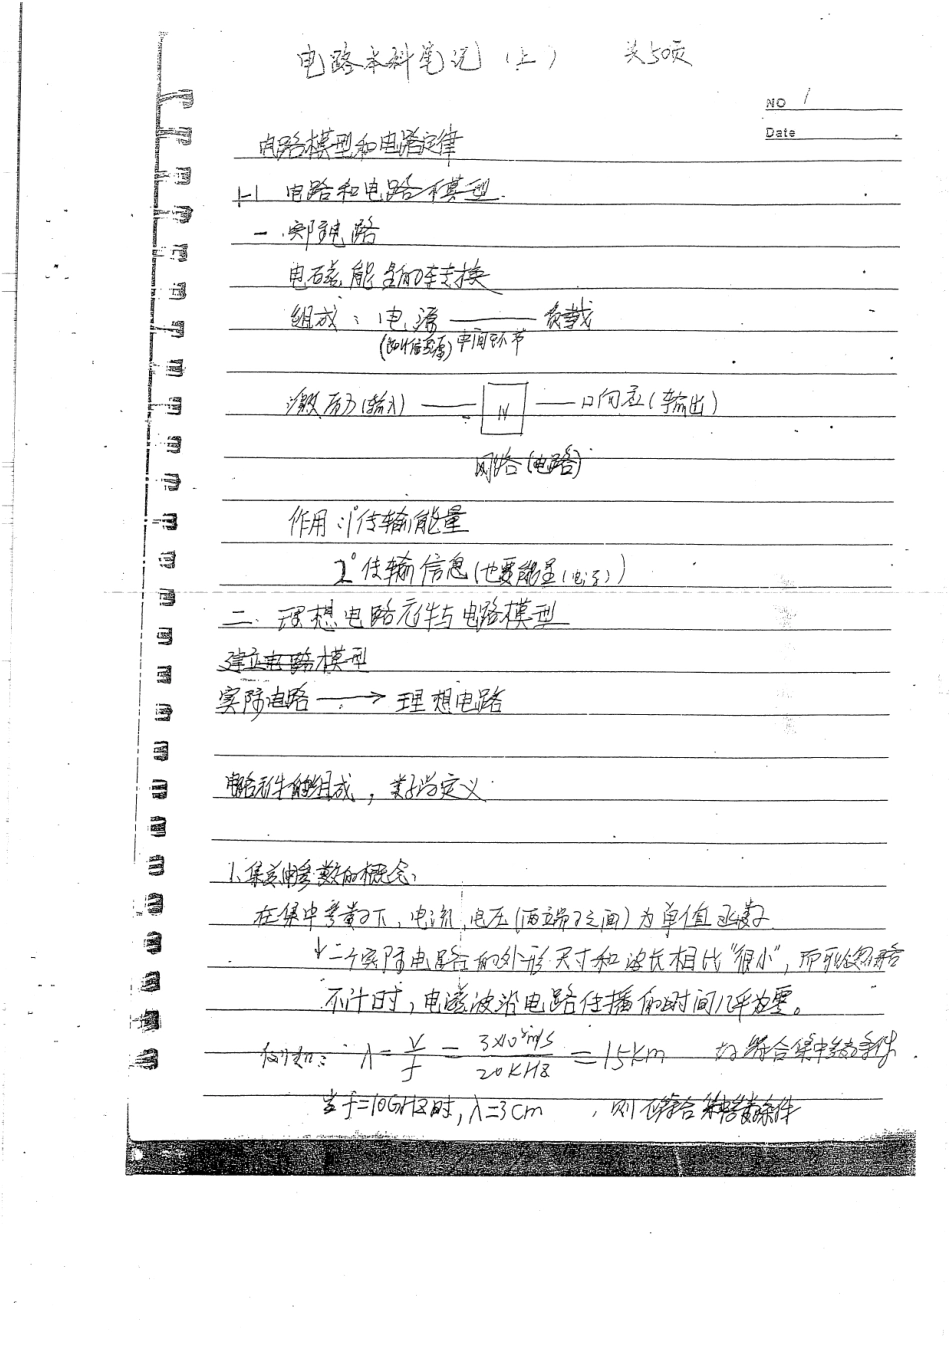 电路本科笔记（上） 共50页
NO 1
Date
电路模型和电路定律
1-1 电路和电路模型.
一.实际电路
电磁能量的传输转换
组成: 电源 —— 负载
(或信号源) 中间环节
激励(输入) —— N —— 响应(输出)
网络(电路)
作用: 1°传输能量
2°传输信息(也要能量(电源))
二. 理想电路元件与电路模型
建立电路模型
实际电路 ——→ 理想电路
电路元件的组成，数学定义
1、集总参数的概念,
在集中参数下，电流,电压(两端子之间)为单值函数
↓一个实际电路的外形尺寸和波长相比“很小”，而可以忽略
不计时，电磁波沿电路传播的时间几乎为零。
例如: λ = V/f = 3×10⁸m/s / 20KHz = 15km 故符合集中参数条件.
当f=10GHz时, λ=3cm , 则不符合集中参数条件